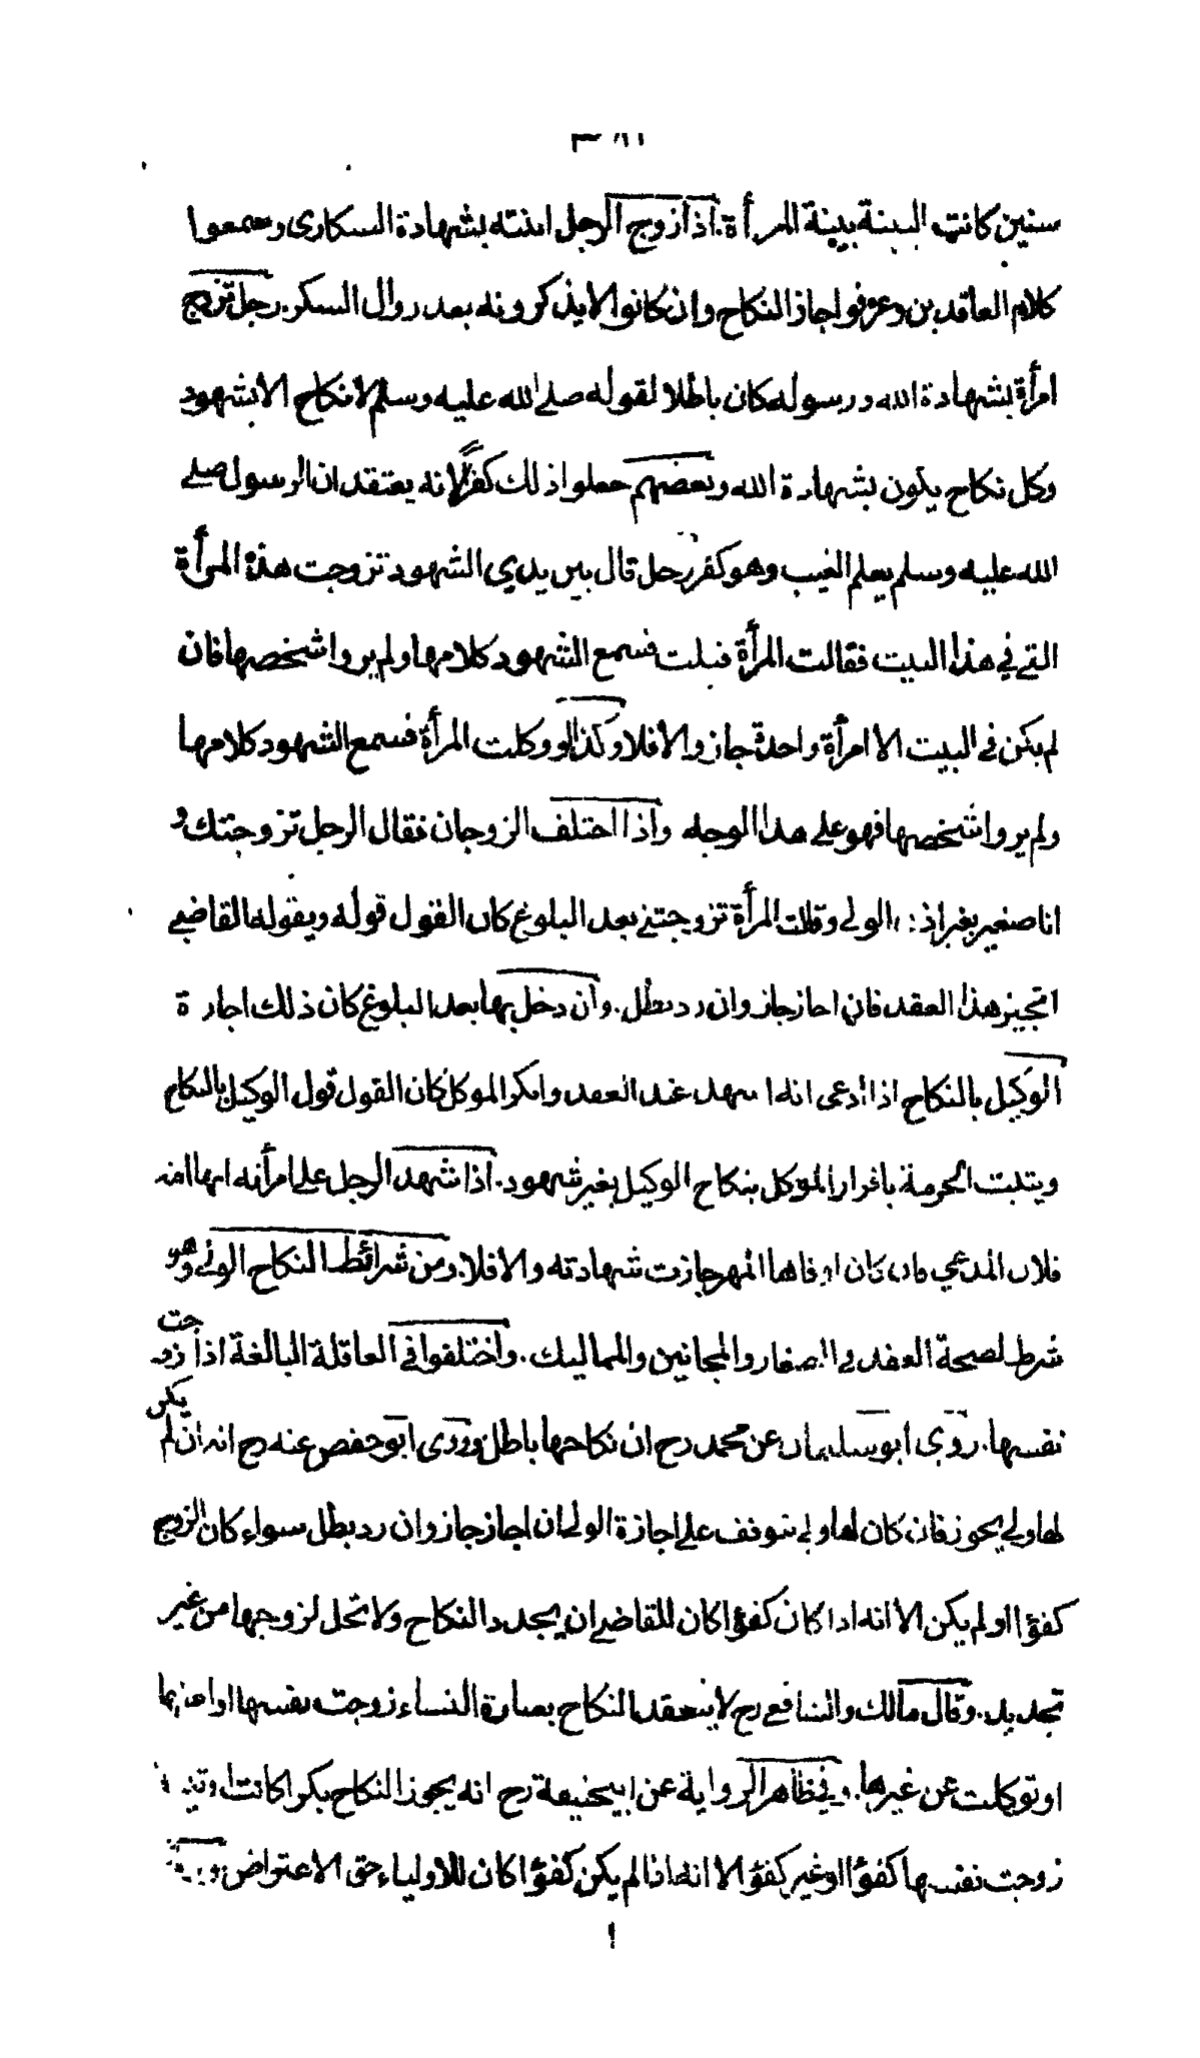 سنين كانت البينة بينة المرأة. اذا زوج الرجل ابنته بشهادة السكارى وسمعوا
كلام العاقدين وعرفوا جاز النكاح وان كانوا لا يذكرونه بعد زوال السكر. رجل تزوج
امرأة بشهادة الله ورسوله كان باطلا لقوله صلى الله عليه وسلم لا نكاح الا بشهود
وكل نكاح يكون بشهادة الله وبعضهم جعلوا ذلك كفرًا لانه يعتقد ان الرسول صلى
الله عليه وسلم يعلم الغيب وهو كفر رجل قال بين يدي الشهود تزوجت هذه المرأة
التي في هذا البيت فقالت المرأة قبلت فسمع الشهود كلامها ولم يروا شخصها فان
لم يكن في البيت الا امرأة واحدة جاز والا فلا وكذا لو وكلت المرأة فسمع الشهود كلامها
ولم يروا شخصها فهو على هذا الوجه واذا اختلف الزوجان فقال الرجل تزوجتك و
انا صغير بغير اذن الولي وقالت المرأة تزوجتني بعد البلوغ كان القول قوله ويقول له القاضي
اتجيز هذا العقد فان اجاز جاز وان رد بطل. وان دخل بها بعد البلوغ كان ذلك اجازة
الوكيل بالنكاح اذا ادعى انه اشهد عند العقد وانكر الموكل كان القول قول الوكيل بالنكاح
ويثبت الحرمة باقرار الموكل بنكاح الوكيل بغير شهود. اذا شهد الرجل على امرأته انها امة
فلان المدعي فان كان اوفاها المهر جازت شهادته والا فلا. ومن شرائط النكاح الولي وهو
شرط لصحة العقد في الصغار والمجانين والمماليك. واختلفوا في العاقلة البالغة اذا زوجت
نفسها. روى ابو سليمان عن محمد رح ان نكاحها باطل وروى ابو حفص عنه رح انه ان لم يكن
لها ولي يجوز فان كان لها ولي يتوقف على اجازة الولي ان اجاز جاز وان رد بطل سواء كان الزوج
كفؤا او لم يكن الا انه اذا كان كفؤا كان للقاضي ان يجدد النكاح ولا تحل لزوجها من غير
تجديد. وقال مالك والشافعي رح لا ينعقد النكاح بعبارة النساء زوجت نفسها او امتها
او توكلت عن غيرها. وفي ظاهر الرواية عن ابيحنيفة رح انه يجوز النكاح بكرا كانت او ثيبا
زوجت نفسها كفؤا او غير كفؤ الا انه اذا لم يكن كفؤا كان للاولياء حق الاعتراض